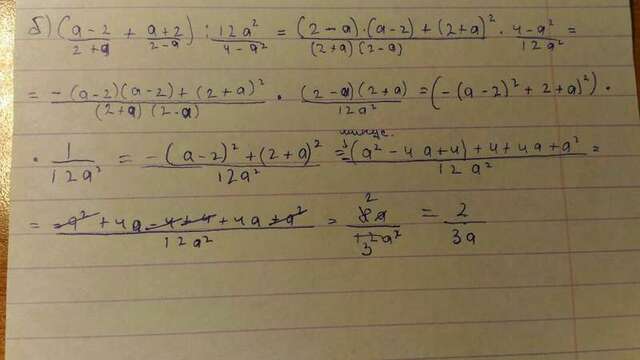 б) ((a-2)/(2+a) + (a+2)/(2-a)) : 12a²/(4-a²) = ((2-a)·(a-2)+(2+a)²)/((2+a)(2-a)) · (4-a²)/(12a²) =
= (-(a-2)(a-2)+(2+a)²)/((2+a)(2-a)) · ((2-a)(2+a))/(12a²) = (-(a-2)²+2+a)²)·
· 1/(12a²) = (-(a-2)²+(2+a)²)/(12a²) = (-(a²-4a+4)+4+4a+a²)/(12a²) =
минус.
= (-a²+4a-4+4+4a+a²)/(12a²) = 8a/(12a²) = 2/(3a)
2
3